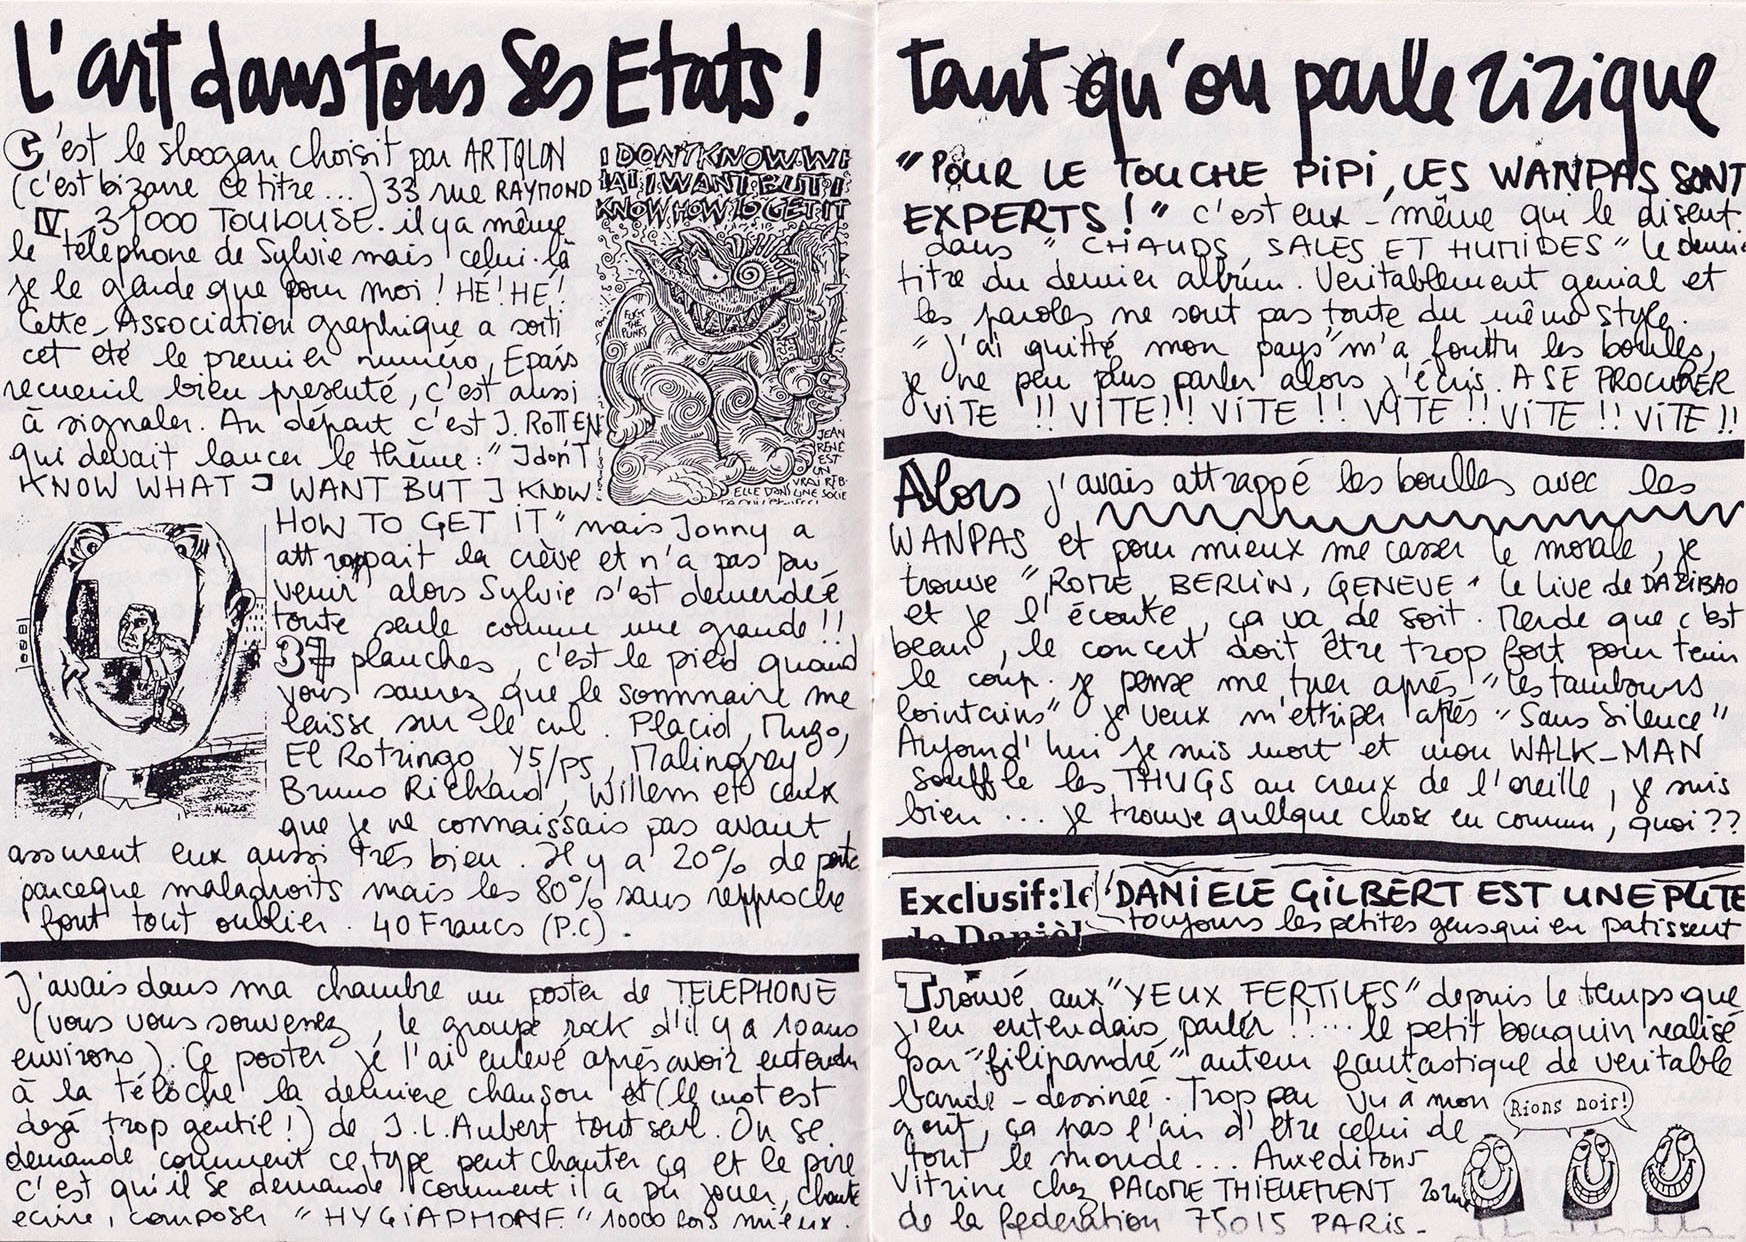 L'art dans tous ses Etats !
C'est le sloogan choisit par ARTQLON
(c'est bizarre ce titre...) 33 rue RAYMOND
IV 31000 TOULOUSE. il y a même
le téléphone de Sylvie mais celui-là
je le garde que pour moi ! HÉ! HÉ!
Cette Association graphique a sorti
cet été le premier numéro, Epais
recueuil bien presenté, c'est aussi
à signaler. Au départ c'est J. ROTTEN
qui devait lancer le thème : "I don't
KNOW WHAT I WANT BUT I KNOW
HOW TO GET IT" mais Jonny a
attrappait la crève et n'a pas pu
venir alors Sylvie s'est demerdée
toute seule comme une grande !!
37 planches, c'est le pied quand
vous saurez que le sommaire me
laisse sur le cul. Placid, Muzo,
El Rotringo, Y5/P5, Malingrey,
Bruno Richard, Willem et ceux
que je ne connaissais pas avant
assurent eux aussi très bien. Il y a 20% de perte
parceque maladroits mais les 80% sans repproche
font tout oublier. 40 Francs (P.C).
I DON'T KNOW WH
AT I WANT BUT I
KNOW HOW TO GET IT
FUCK
THE
PUNKS
JEAN
RENE
EST
UN
VRAI REB
ELLE DANS UNE SOCIE
MUZO
J'avais dans ma chambre un poster de TELEPHONE
(vous vous souvenez, le groupe rock d'il y a 10 ans
environs). Ce poster je l'ai enlevé après avoir entendu
à la téloche la derniere chanson et (le mot est
dejà trop gentil!) de J.L. Aubert tout seul. On se
demande comment ce type peut chanter ça et le pire
c'est qu'il se demande comment il a pu jouer, chanté
ecrire, composer "HYGIAPHONE" 10000 fois mieux.
tant qu'on parle zizique
"POUR LE TOUCHE PiPi, LES WANPAS SONT
EXPERTS !" c'est eux-même qui le disent
dans "CHAUDS, SALES ET HUMIDES" le dernie
titre du dernier album. Veritablement genial et
les paroles ne sont pas toute du même style.
"j'ai quitté mon pays" m'a fouttu les boules,
je ne peu plus parler alors j'écris. A SE PROCURER
VITE !! VITE!! VITE !! VITE !! VITE !! VITE !!
Alors j'avais attrappé les boulles avec les
WANPAS et pour mieux me casser le morale, je
trouve "ROME, BERLIN, GENEVE" le live de DAZIBAO
et je l'écoute, ça va de soit. Merde que c'est
beau, le concert doit être trop fort pour tenir
le coup. je pense me tuer après "les tambours
lointains" je veux m'ettriper après "Sans Silence"
Aujourd'hui je suis mort et mon WALK-MAN
souffle les THUGS au creux de l'oreille, je suis
bien ... je trouve quellque chose en commun, quoi ??
Exclusif: le "DANIELE GILBERT EST UNE PUTE
de Danièl toujours les petites gens qui en patissent
Trouvé aux "YEUX FERTILES" depuis le temps que
j'en entendais parler !! ... le petit bouquin realisé
par "filipandré" auteur fantastique de veritable
bande-dessinée. Trop peu vu à mon
gout, ça pas l'air d'être celui de
tout le monde... Aux editons
Vitrine chez PACOME THIELLEMENT 20 rue
de la federation 75015 PARIS-
Rions noir!